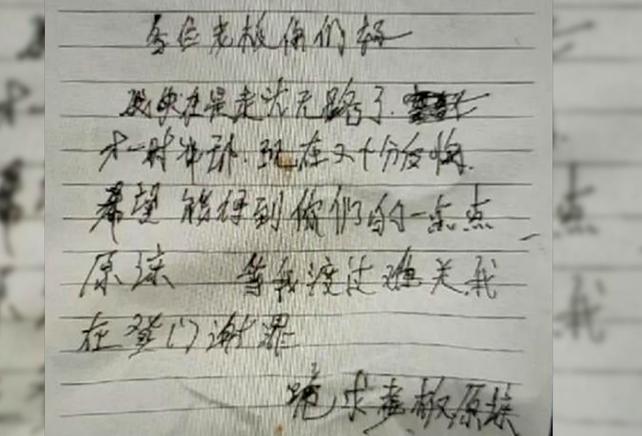 各位老板你们好
我实在是走头无路了.
才一时冲动.现在又十分后悔.
希望能得到你们的一点点
原谅 等我渡过难关我
在登门谢罪
跪求老板原谅